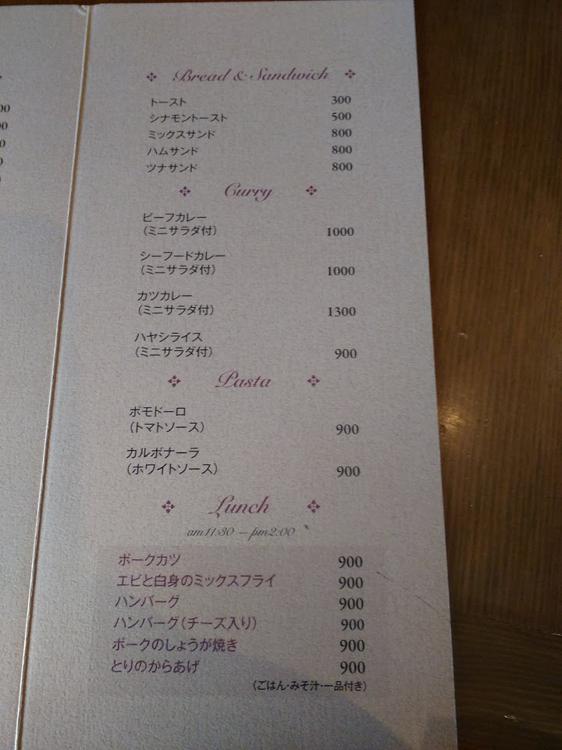 Bread & Sandwich
トースト 300
シナモントースト 500
ミックスサンド 800
ハムサンド 800
ツナサンド 800
Curry
ビーフカレー
(ミニサラダ付) 1000
シーフードカレー
(ミニサラダ付) 1000
カツカレー
(ミニサラダ付) 1300
ハヤシライス
(ミニサラダ付) 900
Pasta
ポモドーロ
(トマトソース) 900
カルボナーラ
(ホワイトソース) 900
Lunch
am11:30 – pm2:00
ポークカツ 900
エビと白身のミックスフライ 900
ハンバーグ 900
ハンバーグ(チーズ入り) 900
ポークのしょうが焼き 900
とりのからあげ 900
(ごはん・みそ汁・一品付き)